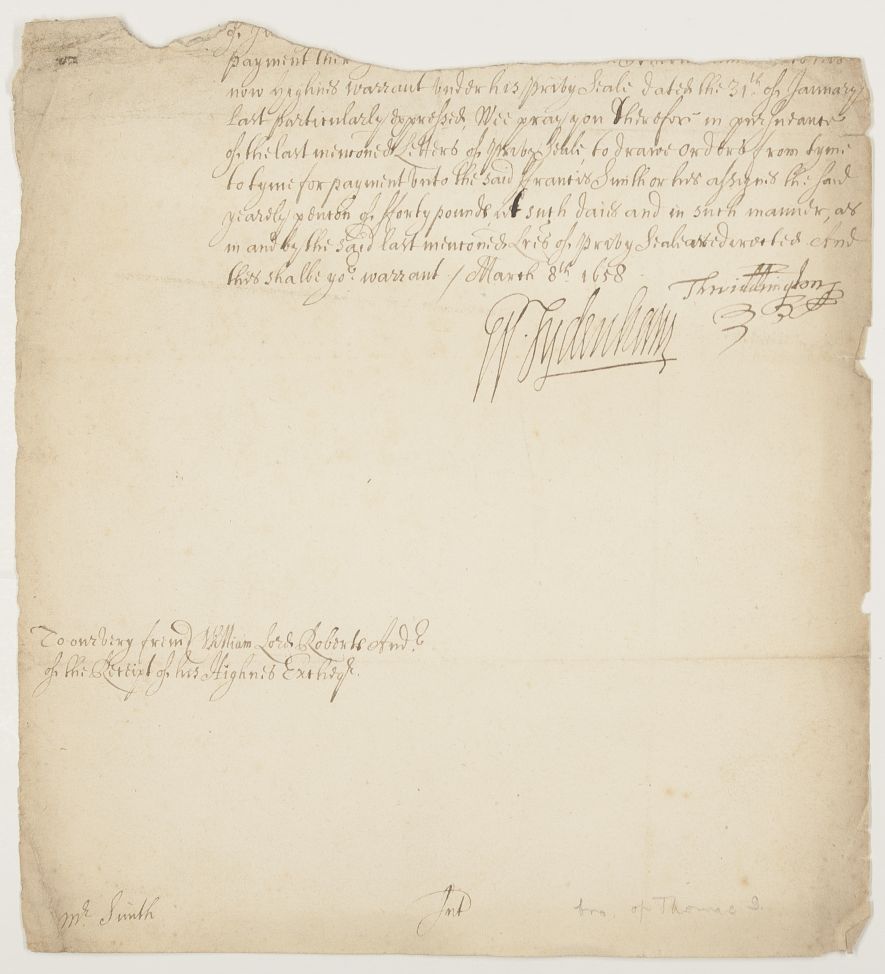 payment
now Highnes warrant under his Privy Seale dated the 31th of January
last particularly expressed, Wee pray you therefore in pursueance
of the last menconed Letters of Privy Seale, to drawe orders from tyme
to tyme for payment unto the said Francis Smith or his assignes the said
yearely pencon of fforty pounds At such daies and in such manner, as
in and by the said last menconed Lres of Privy Seale are directed And
this shalbe yor. warrant / March 8th. 1658
Th widdrington
W. Sydenham
To our very frend William Lord Roberts Audr.
of the Receipt of his Highnes Excheqr.
Mr. Smith
Int
bro. of Thomas S.